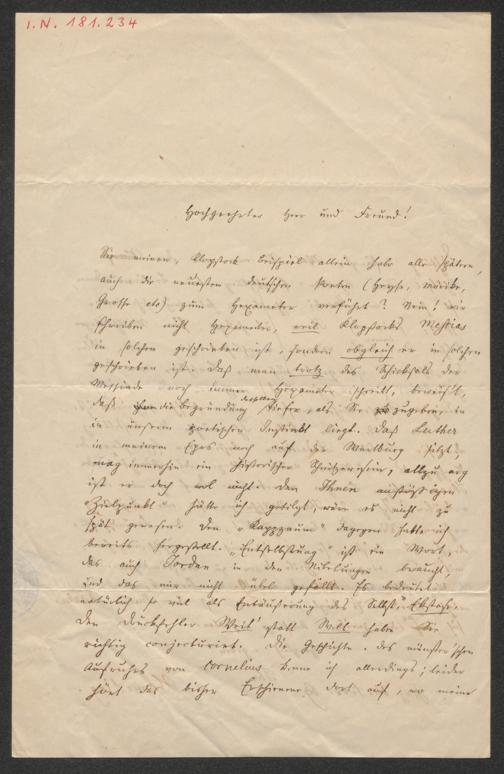 I.N. 181.234
Hochgeehrter Herr und Freund!
Sie meinen, Klopstock's Beispiel allein habe alle spätern,
auch die neuesten deutschen Poeten (Heyse, Mörike,
Grosse etc) zum Hexameter verführt? Nein! wir
schreiben nicht Hexameter, weil Klopstocks Messias
in solchen geschrieben ist, sondern obgleich er in solchen
geschrieben ist. Daß man trotz des Schicksals der
Messiade noch immer Hexameter schreibt, beweist,
daß die Begründung desselben tiefer, als Sie zugeben, in
in unserem poetischen Instinkt liegt. Daß Luther
in meinem Epos noch auf der Wartburg sitzt,
mag immerhin ein historischer Schnitzer sein; allzu arg
ist er doch wol nicht. Den Ihnen anstößigen
"Zielpunkt" hätte ich getilgt, wäre es nicht zu
spät gewesen. Den "Kappzaum" dagegen hatte ich
bereits hergestellt. "Entselbstung" ist ein Wort,
das auch Jordan in den Nibelungen braucht,
und das mir nicht übel gefällt. Es bedeutet
natürlich so viel als Entäußerung des Selbst, Ekstase.
Den Druckfehler "Weit" statt Welt haben Sie
richtig conjecturirt. Die Geschichte des münster'schen
Aufruhrs von Cornelius kenne ich allerdings; leider
hört das bisher Erschienene dort auf, wo meine